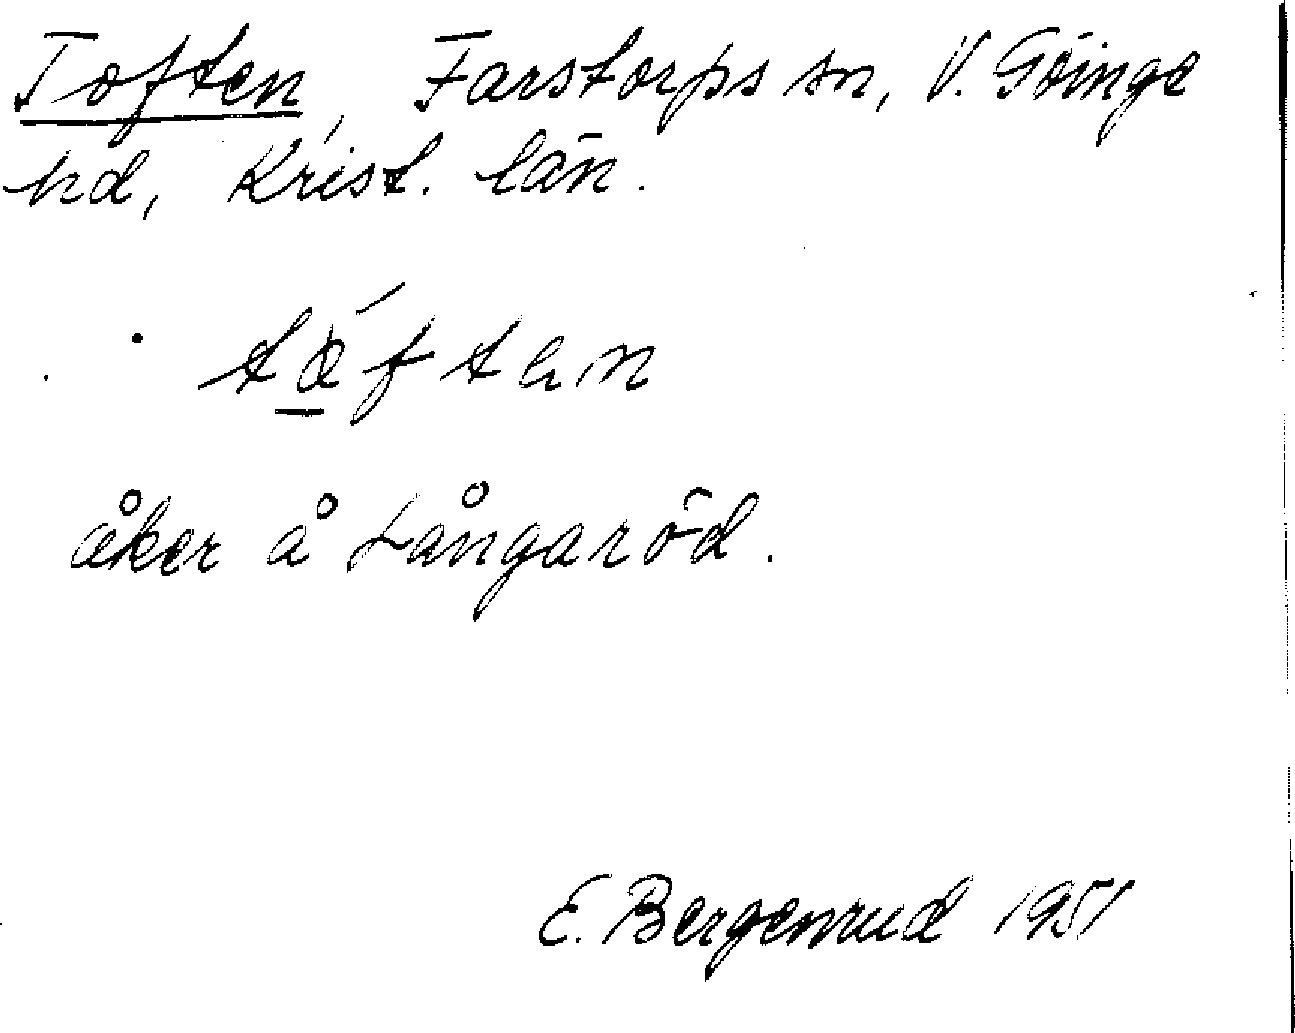 Toften, Farstorps sn, V. Göinge
hd, Krist. län.
åker å Långaröd.
E. Bergenrud 1951